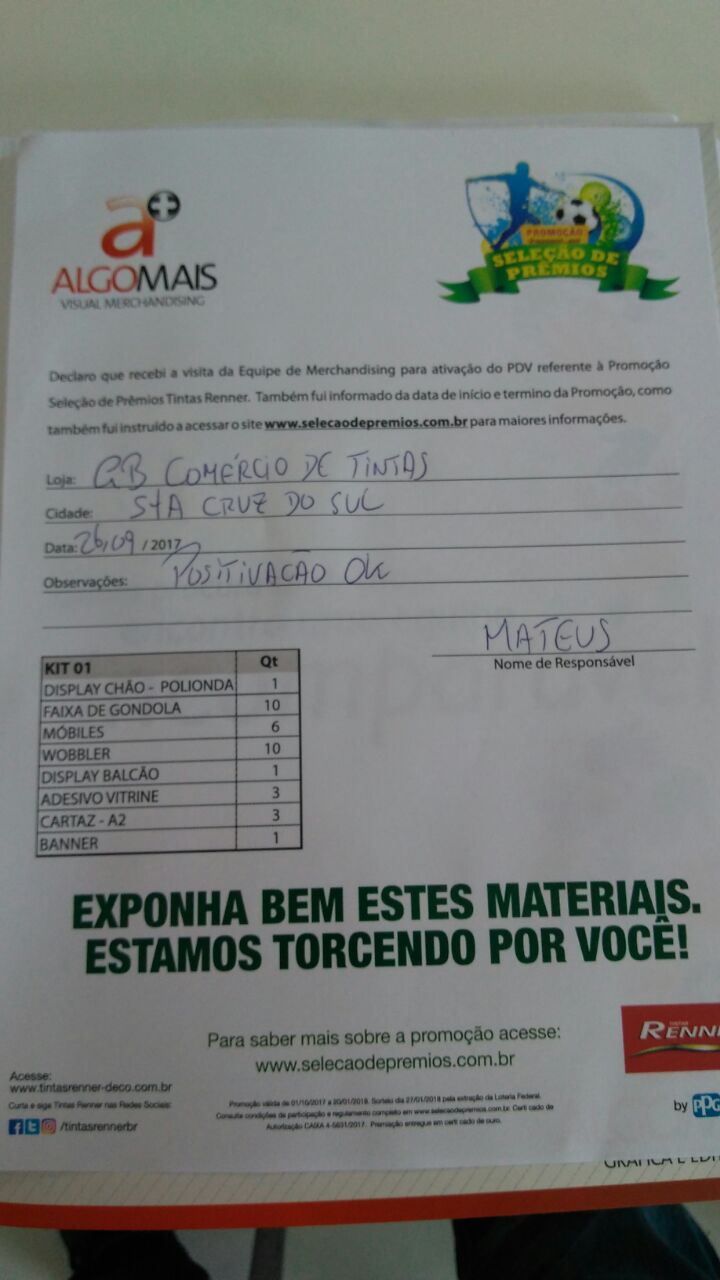 a+
ALGOMAIS
VISUAL MERCHANDISING
PROMOÇÃO
SELEÇÃO DE
PRÊMIOS
Declaro que recebi a visita da Equipe de Merchandising para ativação do PDV referente à Promoção
Seleção de Prêmios Tintas Renner. Também fui informado da data de início e termino da Promoção, como
também fui instruído a acessar o site www.selecaodepremios.com.br para maiores informações.
Loja: GB COMÉRCIO DE TINTAS
Cidade: STA CRUZ DO SUL
Data: 26/09 / 2017
Observações: POSITIVAÇÃO OK
MATEUS
Nome de Responsável
KIT 01 Qt
DISPLAY CHÃO - POLIONDA 1
FAIXA DE GONDOLA 10
MÓBILES 6
WOBBLER 10
DISPLAY BALCÃO 1
ADESIVO VITRINE 3
CARTAZ - A2 3
BANNER 1
EXPONHA BEM ESTES MATERIAIS.
ESTAMOS TORCENDO POR VOCÊ!
Para saber mais sobre a promoção acesse:
www.selecaodepremios.com.br
TINTAS
RENN
Acesse:
www.tintasrenner-deco.com.br
Curta e siga Tintas Renner nas Redes Sociais:
/tintasrennerbr
Promoção válida de 01/10/2017 a 20/01/2018. Sorteio dia 27/01/2018 pela extração da Loteria Federal.
Consulte condições de participação e regulamento completo em www.selecaodepremios.com.br. Certi cado de
Autorização CAIXA 4-5631/2017. Premiação entregue em certi cado de ouro.
by PPG
GRÁFICA E EDIT